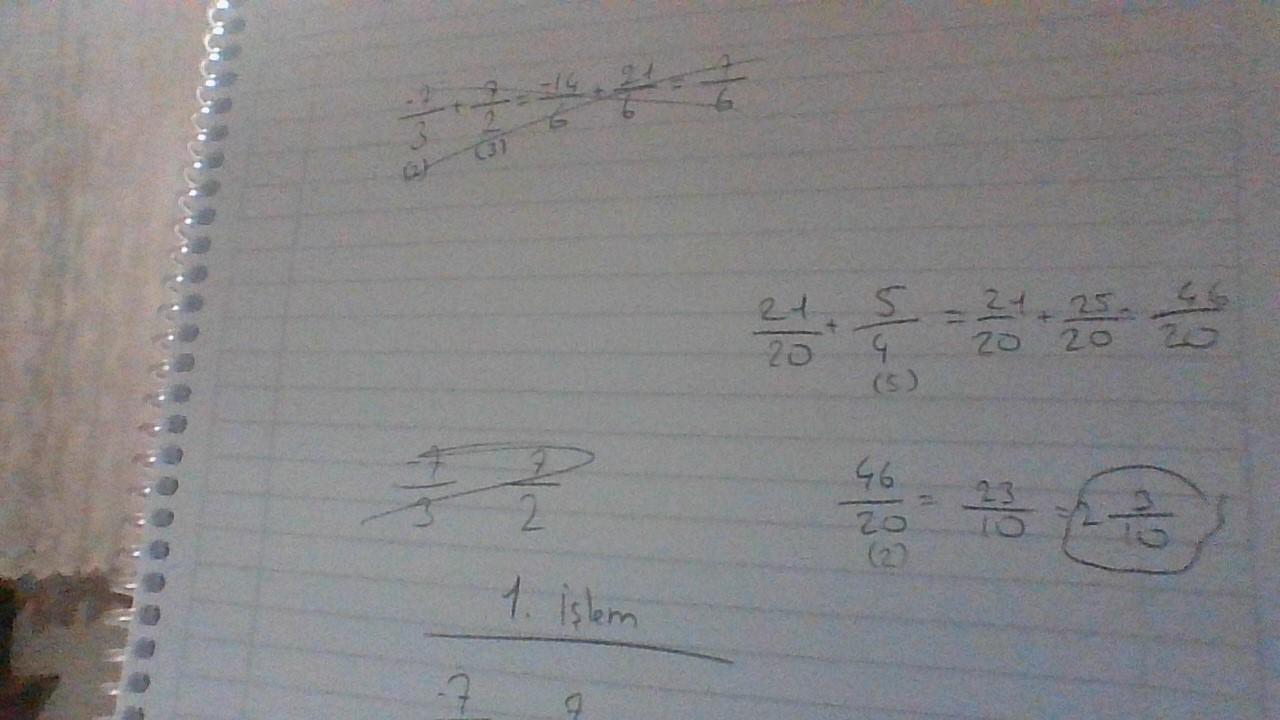 -7/3 + 7/2 = -14/6 + 21/6 = 7/6
(2) (3)
21/20 + 5/4 = 21/20 + 25/20 = 46/20
(5)
-7/3 7/2
46/20 = 23/10 = 2 3/10
(2)
1. işlem
-7 7